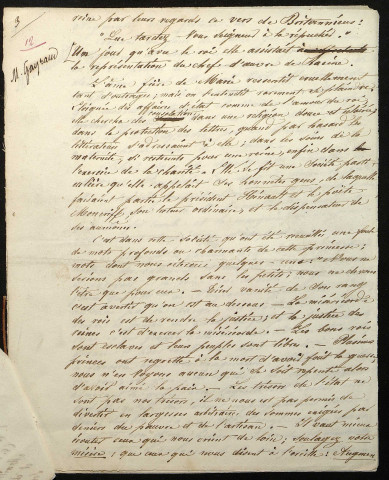 3
12
M. Gayraud
reine par leurs regards ce vers de Britannicus :
"Que tardez-vous Seigneur à la répudier ?"
Un jour qu'avec le roi elle assistait
la représentation du chef d'œuvre de Racine.
L'âme fière de Marie ressentit cruellement
tant d'outrages ; mais on l'entendit rarement se plaindre.
Éloignée des affaires d'état comme de l'amour du roi,
elle chercha des consolations dans une religion douce et
dans la protection des lettres, quand par hasard les
littérateurs s'adressaient à elle ; dans les soins de la
maternité, si restreints pour une reine ; enfin dans
l'exercice de la charité. Elle se fit une Société parti-
culière qu'elle appelait ses honnêtes gens, de laquelle
faisaient partie le président Hénault et le poète
Moncrif, son lecteur ordinaire, et le dispensateur de
ses aumônes.
C'est dans cette Société qu'ont été recueillis une foule
de mots profonds ou charmants de cette princesse :
mots dont nous citerons quelques-uns. " Nous ne
serions pas grands sans les petits : nous ne devons
l'être que pour eux. — Tirer vanité de son rang
c'est avertir qu'on est au dessous. — La miséricorde
des rois est de rendre la justice ; et la justice des
reines c'est d'exercer la miséricorde. — Les bons rois
sont esclaves et leurs peuples sont libres. — Plusieurs
princes ont regretté à la mort d'avoir fait la guerre,
nous n'en voyons aucun qui se soit repenti alors
d'avoir aimé la paix. — Les trésors de l'état ne
sont pas nos trésors, il ne nous est pas permis de
divertir en largesses arbitraires des sommes exigées par
deniers du pauvre et de l'artisan. — Il vaut mieux
écouter ceux qui nous crient de loin : soulagez notre
misère, que ceux qui nous disent à l'oreille : Augmen